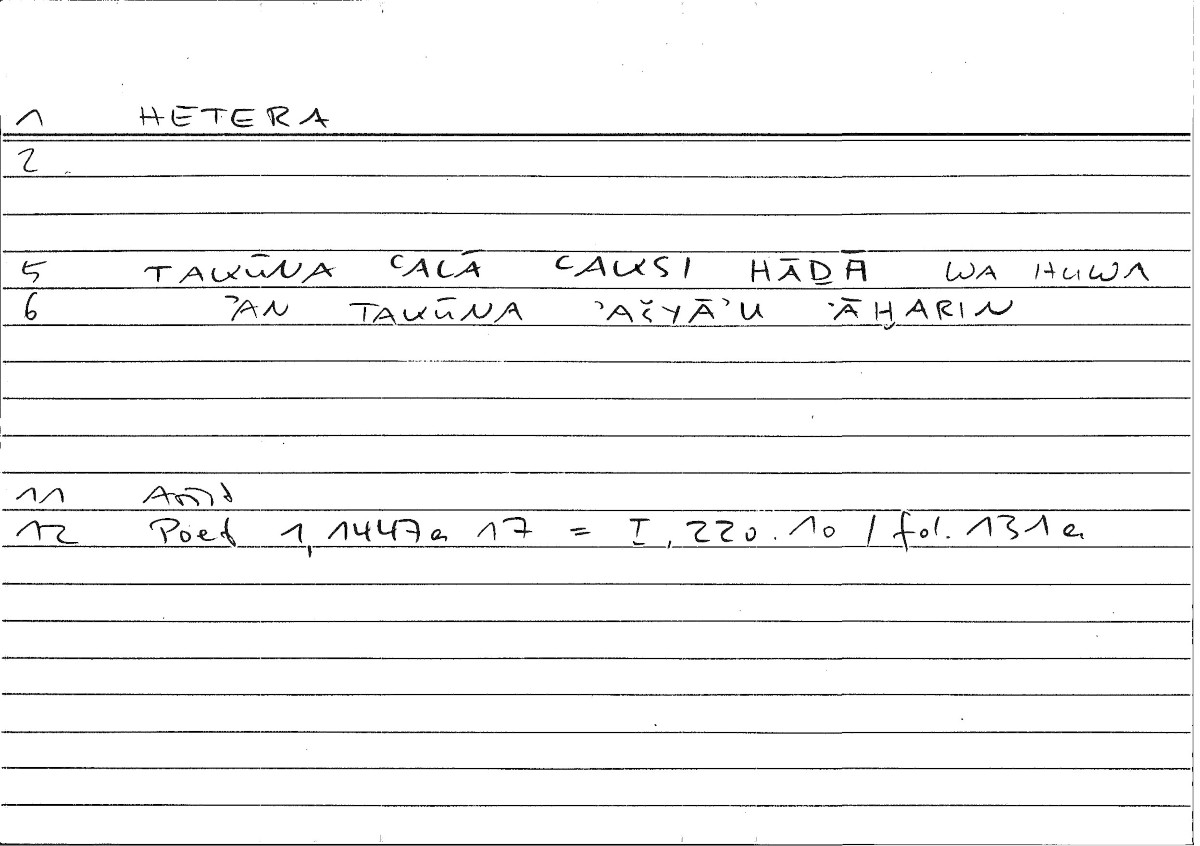 1 HETERA
2
5 TAKŪNA ʿALĀ ʿAKSI HĀḎĀ WA HUWA
6 ʾAN TAKŪNA ʾAŠYĀʾU ʾĀḪARIN
11 Arist
12 Poet 1, 1447a 17 = I, 220.10 / fol. 131a